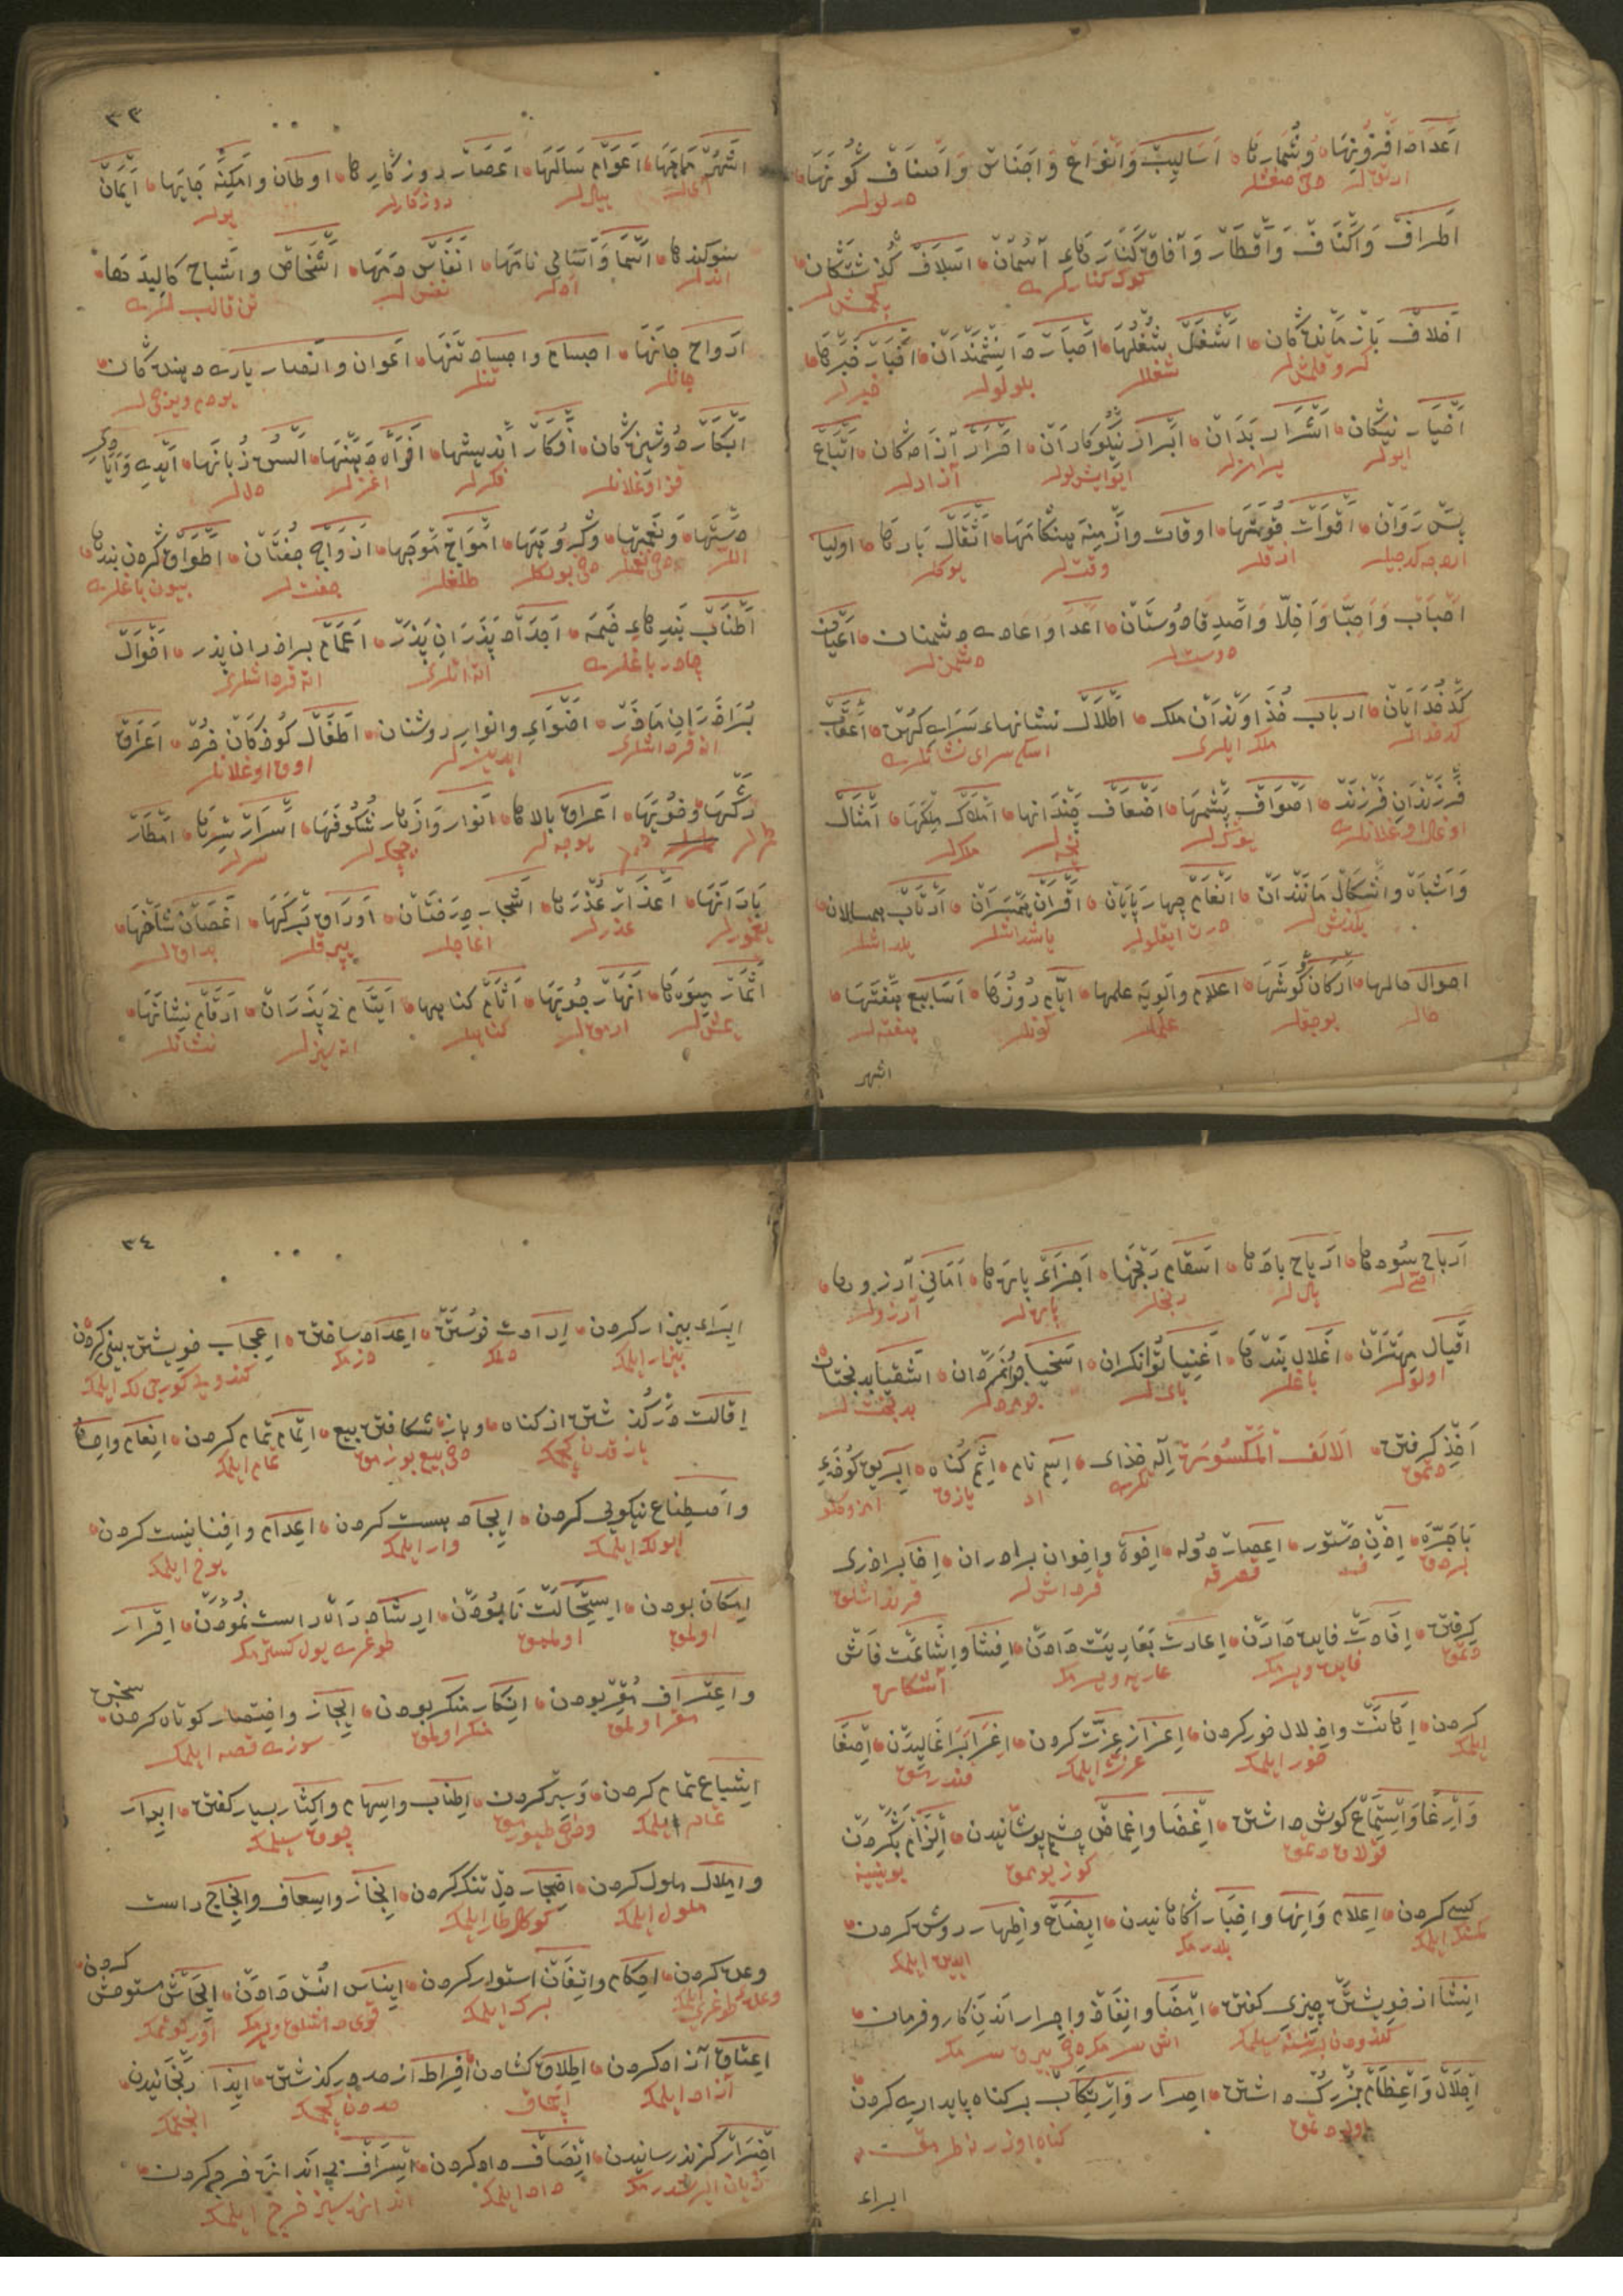 اعداد افزونیها و شمارها اسالیب و انواع و اجناس و اصناف گونها
دلولر
اطراف و اکناف و اقطار و آفاق کنارهاء آسمان اسلاف گذشتگان
کوک کنارلری کچمش لر
اخلاف بازماندگان اشغال شغلها احبار دانشمندان اخبار خبرها
کرو قلمش لر شغللر بلولر خبرلر
اخیار نیکان اشرار بدان ابرار نیکوکاران احرار آزادگان اتباع
ایولر یرامزلر ایو ایشلولر آزادلر
پس روان اقوات قوتها اوقات و ازمنه هنگامها اثقال بارها اولیا
اردجه کدجیلر ازقلر وقت لر یوکلر
احباب و احبّا و اخلّا و اصدقا دوستان اعدا و اعادی دشمنان اعیان
دوست لر دشمن لر
کدخدایان ارباب خداوندان ملک اطلال نشانهاء سرای کهن اعقاب
کدخدالر ملک ایلری اسکی سرای نشانلری
فرزندان فرزند اصواف پشمها اضعاف چندانها املاک ملکها امثال
اوغل اوغلانلری یوکلر ملکلر
و اشباه و اشکال مانندان انعام چهارپایان اقران همسران اتراب همسالان
بکذش لر درت ایقلولر یاشداشلر یلداشلر
احوال حالها ارکان گوشها اعلام و الویه علمها ایّام روزها اسابیع هفتها
حاللر بوجقلر علملر کونلر هفته لر
اشهر
٣٣
اشهر ماهها اعوام سالها اعصار روزگارها اوطان و امکنه جایها ایمان
آیلر ییللر روزکارلر یرلر
سوکندها اسما و اسامی نامها انفاس دمها اشخاص و اشباح کالبدها
اندلر ادلر نفس لر تن قالب لری
ارواح جانها اجسام و اجساد تنها اعوان و انصار یاری دهندگان
جانلر تنلر یردم ویرجیلر
ابکار دوشیزگان افکار اندیشها افواه دهنها السن زبانها ایدی و ایادی
قز اوغلانلر فکرلر اغزلر دللر
دستها و نعمتها و گروهها امواج موجها ازواج جفتان اطواق گردن بندها
اللر طلغلر جفت لر بیون باغلری
اطناب بندهاء خیمه اجداد پدران پدر اعمام برادران پدر اخوال
چادر باغلری اتا اتلری اتا قرداشلری
برادران مادر اضواء و انوار روشنان اطفال کودکان خرد اعراق
انا قرداشلری ایدینلر اوق اوغلانلر
رگها و خویها اعراف بالاها انوار و ازهار شکوفها اسرار سرها امطار
طمرلر یوجه لر چیچکلر سرلر
بارانها اعذار عذرها اشجار درختان اوراق برگها اغصان شاخها
یغمورلر عذرلر اغاچلر یپرقلر بداقلر
اثمار میوها انهار جویها اثام گناهها ایتام بی پدران ارقام نشانها
یمش لر ارمقلر کناهلر اتاسزلر نشانلر
ارباح سودها اریاح بادها اسقام رنجها اجزاء پارها امانی آرزوها
اصیلر یللر رنجلر پارلر آرزولر
اقیال مهتران اغلال بندها اغنیا توانگران اسخیا جوانمردان اشقیا بدبختان
اولولر باغلر بایلر جومردلر بدبخت لر
اخذ گرفتن الالف المکسورة اله خدای اسم نام اثم گناه ابریق کوزه
دتمق تکری اد یازق
باجرّه اذن دستور اعصار دوله اخوة و اخوان برادران اخا برادری
بردق قصرقه قرداش لر قرنداشلق
گرفتن افادت فایده دادن اعارت بعاریت دادن افشا و اشاعت فاش
دتمق فایده ویرمک عاریه ویرمک آشکاره
کردن اهانت و اذلال خور کردن اعزاز عزت کردن اغرا برآغالیدن اصغا
ایلمک خور ایلمک عزت ایلمک قندرمق
و ارعا و استماع گوش داشتن اغضا و اغماض چشم پوشانیدن الزام بگردن
قولاق دتمق کوز یوممق بوینینه
کسی کردن اعلام و انها و اخبار آگاهانیدن ایضاح و اظهار روشن کردن
بلدرمک ایدین ایلمک
انشا از خویشتن چیزی گفتن امضا و انفاذ و اجرا راندن کار و فرمان
کندودن نسنه سیلمک
اجلال و اعظام بزرگ داشتن اصرار و ارتکاب بر گناه پایداری کردن
اولو دتمق کناه اوزرنه طرمق
ابراء
٣٤
ابراء بیزار کردن ارادت خواستن اعداد ساختن اعجاب خویشتن بینی کردن
بیزار ایلمک دلمک دزمک کندویی کوریجی لک ایلمک
اقالت درگذشتن از گناه و باز شکافتن بیع اتمام تمام کردن انعام و احسان
یازقدن کچمک دخی بیع بوزمق تمام ایلمک
و اصطناع نیکویی کردن ایجاد هست کردن اعدام و افنا نیست کردن
ایولک ایلمک وار ایلمک یوخ ایلمک
امکان بودن استحالت نابودن ارشاد راه راست نمودن اقرار
اولمق اولممق طوغری یول کسترمک
و اعتراف مقر بودن انکار منکر بودن ایجاز و اختصار کوتاه کردن سخن
مقر اولمق منکر اولمق سوزی قصه ایلمک
اشباع تمام کردن و سیر کردن اطناب و اسهاب و اکثار بسیار گفتن ابرام
تمام ایلمک دخی طیورمق چوق سیلمک
و املال ملول کردن اضجار دل تنگ کردن انجاز و اسعاف و انجاح راست
ملول ایلمک کوکل طار ایلمک
وعده کردن احکام و اتقان استوار کردن ایناس انس دادن ایحاش مستوحش کردن
برک ایلمک
اعتاق آزاد کردن اطلاق گشادن افراط از حد در گذشتن ایذا رنجانیدن
آزاد ایلمک حددن کچمک انجتمک
اضرار گزند رسانیدن انصاف داد کردن اسراف بی اندازه خرج کردن
زیان ایرشدرمک داد ایلمک اندازه سیز خرج ایلمک